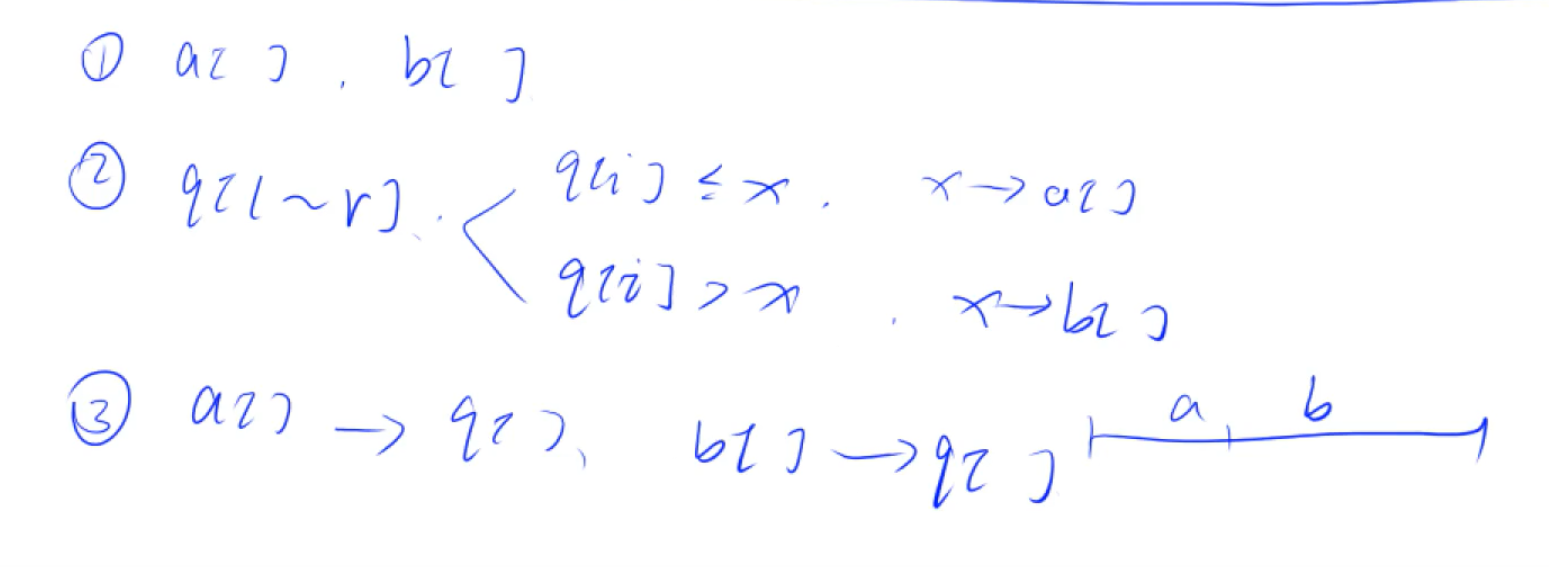 ① a[ ] , b[ ]
② q[l~r] . q[i] ≤ x . x→a[]
q[i] > x . x→b[]
③ a[] → q[], b[] → q[] a b